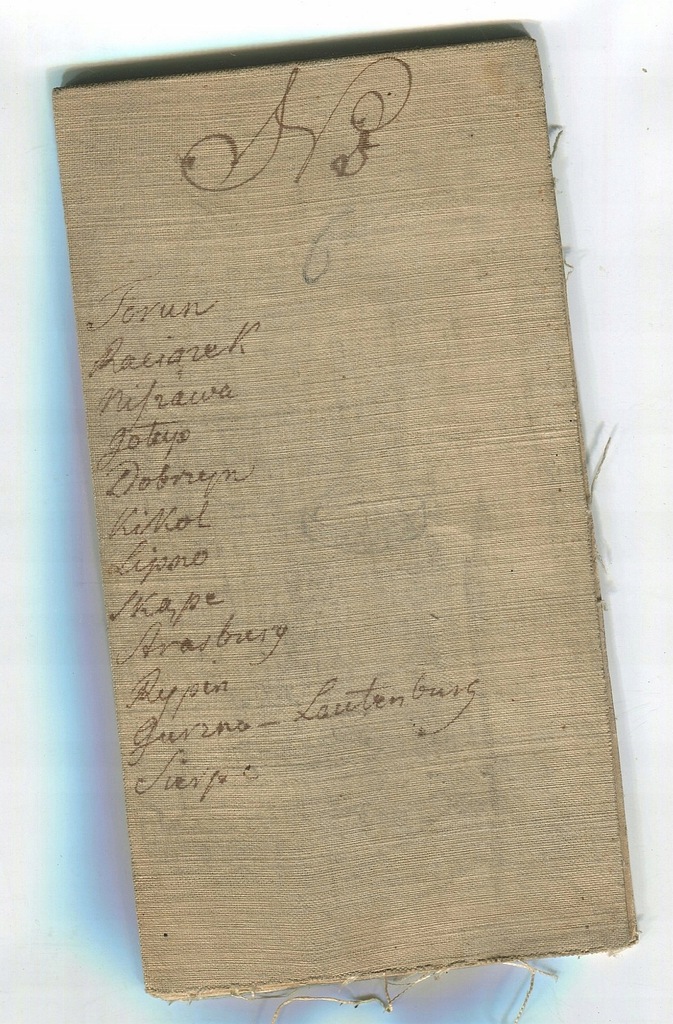 6
Torun
Raciązek
Niſzawa
Dobrzyn
Kikol
Lipno
Skąpe
Strasburg
Rypin
Gurzno - Lautenburg
Sierpc